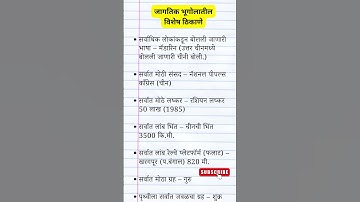 जागतिक भूगोलातील
विशेष ठिकाणे
• सर्वाधिक लोकांकडून बोलली जाणारी
भाषा – मँडारिन (उत्तर चीनमध्ये
बोलली जाणारी चीनी बोली.)
• सर्वात मोठी संसद – नॅशनल पीपल्स
काँग्रेस (चीन)
• सर्वात मोठे लष्कर – रशियन लष्कर
50 लाख (1985)
• सर्वात लांब भिंत – चीनची भिंत
3500 कि.मी.
• सर्वात लांब रेल्वे प्लॅटफॉर्म (फलाट) –
खरगपूर (प.बंगाल) 820 मी.
• सर्वात मोठा ग्रह – गुरु
SUBSCRIBE
• पृथ्वीला सर्वात जवळचा ग्रह – शुक्र